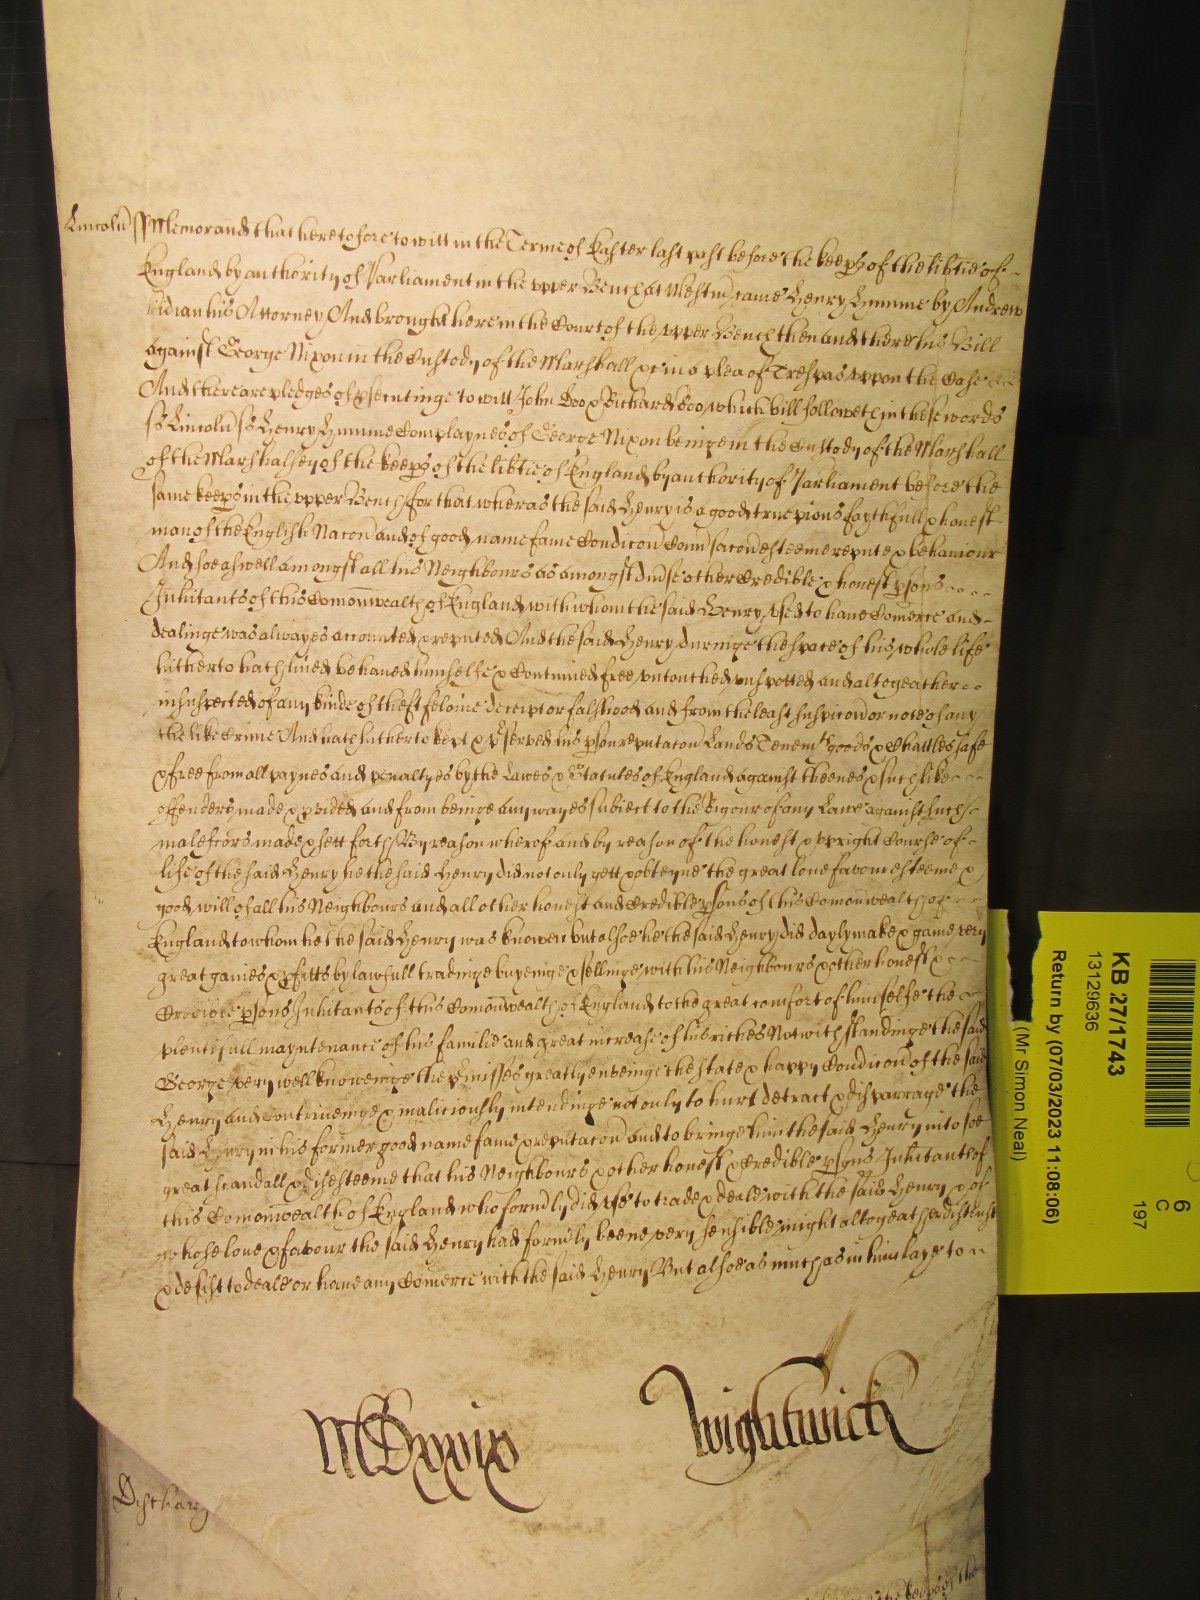 Lincoln ss Memorand that heretofore to witt in the Terme of Easter last past before the keeps of the libtie of
England by authority of Parliament in the vpper Bench at Westm came Henry Humme by Andrew
his Attorney And brought here in the Court of the vpper Bench then and there his Bill
against George Nixon in the Custody of the Marshall &c in a plea of Trespas vppon the Case
And there are pledges of psecutinge to witt John Doo & Richard Roo which bill followeth in these words
ss Lincoln ss Henry Humme Complaynes of George Nixon beinge in the Custody of the Marshall
of the Marshalsey of the keeps of the libtie of England by authority of Parliament before the
same keeps in the vpper Bench for that wheras the said Henry is a good true pious faythfull & honest
man of the English Nacon and of good name fame Condicon Conversacon esteeme repute & behaviour
And soe aswell amongst all his Neighbours as amongst divse other Credible & honest psons
Inhitants of this Comonwealth of England with whom the said Henry vsed to have Comerce and
dealinge was alwayes accounted & reputed And the said Henry duringe the space of his whole life
hitherto hath lived behaved himselfe & Continued free vntouched vnspotted and altogeather
insuspected of any kinde of theft felonie deceipt or falshood and from the least suspicon or note of any
the like Crime And hath hitherto kept & pserved his pson reputacon Lands Tenemts goods & Chattles safe
& free from all paynes and penaltyes by the Lawes & Statutes of England against theeves & such like
offenders made & pvided and from beinge any wayes subiect to the Rigour of any Lawe against such
malefcors made & sett forth By reason wherof and by reason of the honest & vpright Course of
life of the said Henry he the said Henry did not only gett & obteyne the great love favour esteeme &
good will of all his Neighbours and all other honest and Credible psons of this Comonwealth of
England to whom he the said Henry was knowen but alsoe he the said Henry did dayly make & gaine very
great gaines & pfitts by lawfull tradinge buyeinge & sellinge with his Neighbours & other honest &
Credible psons Inhitants of this Comonwealth of England to the great comfort of himselfe the
plentifull mayntenance of his familie and great increase of his riches Notwithstandinge the said
George very well knoweinge the pmisses greatly envieinge the state & happy Condicon of the said
Henry and Contriveinge & maliciously intendinge not only to hurt detract & disparrage the
said Henry in his former good name fame & reputacon and to bringe him the said Henry into soe
great scandall & disesteeme that his Neighbours & other honest & Credible psons Inhitants of
this Comonwealth of England who formly did vse to trade & deale with the said Henry & of
whose love & favour the said Henry had formly beene very sensible might altogeather distrust
& desist to deale or have any Comerce with the said Henry But alsoe as much as in him laye to
MDxxix
Wightwick
Discharg
KB 27/1743
13129636
Return by (07/03/2023 11:08:06)
(Mr Simon Neal)
6
C
197